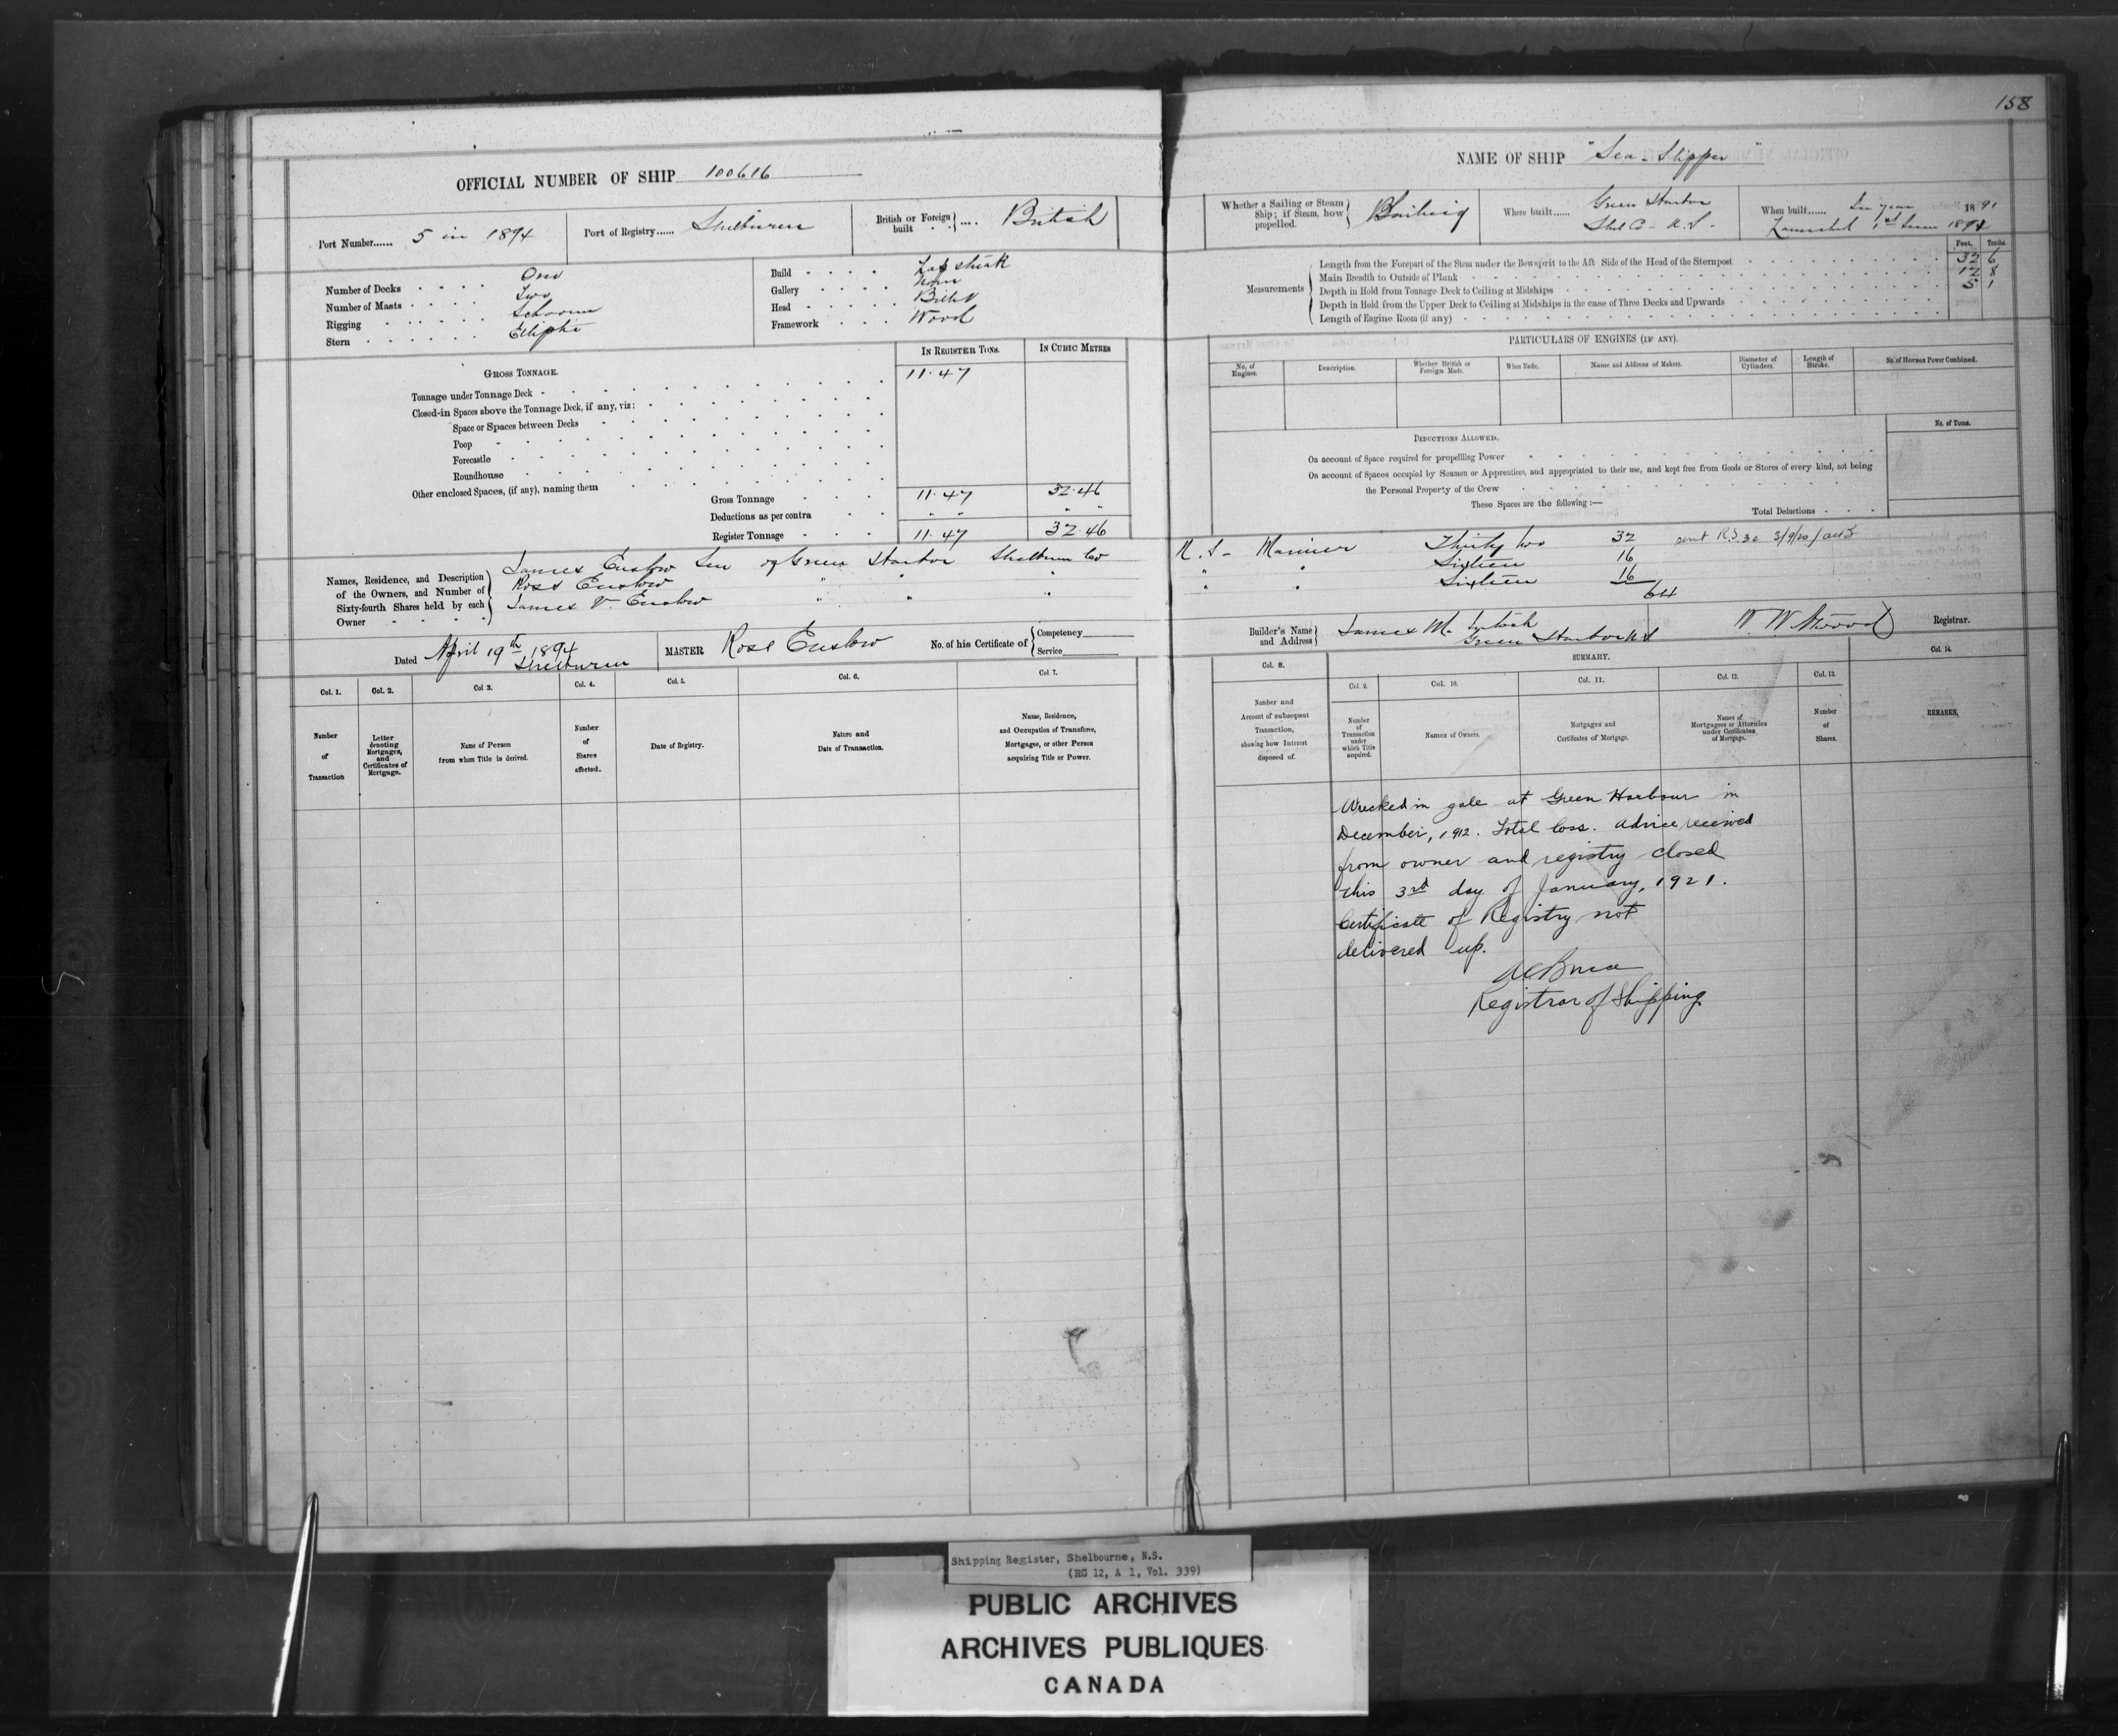 158
OFFICIAL NUMBER OF SHIP 100616
NAME OF SHIP "Sea-Slipper"
Port Number...... 5 in 1894
Port of Registry...... Shelburne
British or Foreign built .... British
Whether a Sailing or Steam Ship; if Steam, how propelled. Sailing
Where built...... Green Harbor
Shel Co - N.S.
When built...... In year 1891
Launched 1st June 1891
Number of Decks One
Number of Masts Two
Rigging Schooner
Stern Eliptic
Build Lap strak
Gallery None
Head Billet
Framework Wood
Measurements
Feet. Tenths.
Length from the Forepart of the Stem under the Bowsprit to the Aft Side of the Head of the Sternpost 32 6
Main Breadth to Outside of Plank 12 8
Depth in Hold from Tonnage Deck to Ceiling at Midships 5 1
Depth in Hold from the Upper Deck to Ceiling at Midships in the case of Three Decks and Upwards
Length of Engine Room (if any)
GROSS TONNAGE.
IN REGISTER TONS. IN CUBIC METRES
Tonnage under Tonnage Deck 11.47
Closed-in Spaces above the Tonnage Deck, if any, viz:
Space or Spaces between Decks
Poop
Forecastle
Roundhouse
Other enclosed Spaces, (if any), naming them
Gross Tonnage 11.47 32.46
Deductions as per contra " " " "
Register Tonnage 11.47 32.46
PARTICULARS OF ENGINES (IF ANY).
No. of Engines. Description. Whether British or Foreign Made. When Made. Name and Address of Makers. Diameter of Cylinders. Length of Stroke. No. of Horses Power Combined.
DEDUCTIONS ALLOWED.
No. of Tons.
On account of Space required for propelling Power
On account of Spaces occupied by Seamen or Apprentices, and appropriated to their use, and kept free from Goods or Stores of every kind, not being
the Personal Property of the Crew
These Spaces are the following :—
Total Deductions
Names, Residence, and Description of the Owners, and Number of Sixty-fourth Shares held by each Owner
James Enslow Sen of Green Harbor Shelburne Co N.S- Mariner Thirty two 32
Ross Enslow " " " " " Sixteen 16
James V. Enslow " " " " " Sixteen 16
64
sent R.S 32 3/9/20
Dated April 19th 1894
Shelburne
MASTER Ross Enslow
No. of his Certificate of Competency
Service
Builder's Name and Address James McIntosh
Green Harbor N S
W W Atwood Registrar.
Col. 1. Col. 2. Col 3. Col. 4. Col. 5. Col. 6. Col. 7.
Number of Transaction
Letter denoting Mortgages, and Certificates of Mortgage.
Name of Person from whom Title is derived.
Number of Shares affected.
Date of Registry.
Nature and Date of Transaction.
Name, Residence, and Occupation of Transferee, Mortgagee, or other Person acquiring Title or Power.
Col. 8. SUMMARY. Col. 14.
Col. 9. Col. 10. Col. 11. Col. 12. Col. 13.
Number and Account of subsequent Transaction, showing how Interest disposed of.
Number of Transaction under which Title acquired.
Names of Owners.
Mortgages and Certificates of Mortgage.
Names of Mortgagees or Attornies under Certificates of Mortgage.
Number of Shares.
REMARKS.
Wrecked in gale at Green Harbour in
December, 1912. Total loss. Advice received
from owner and registry closed
this 3rd day of January, 1921.
Certificate of Registry not
delivered up.
Registrar of Shipping
Shipping Register, Shelbourne, N.S.
(RG 12, A 1, Vol. 339)
PUBLIC ARCHIVES
ARCHIVES PUBLIQUES
CANADA